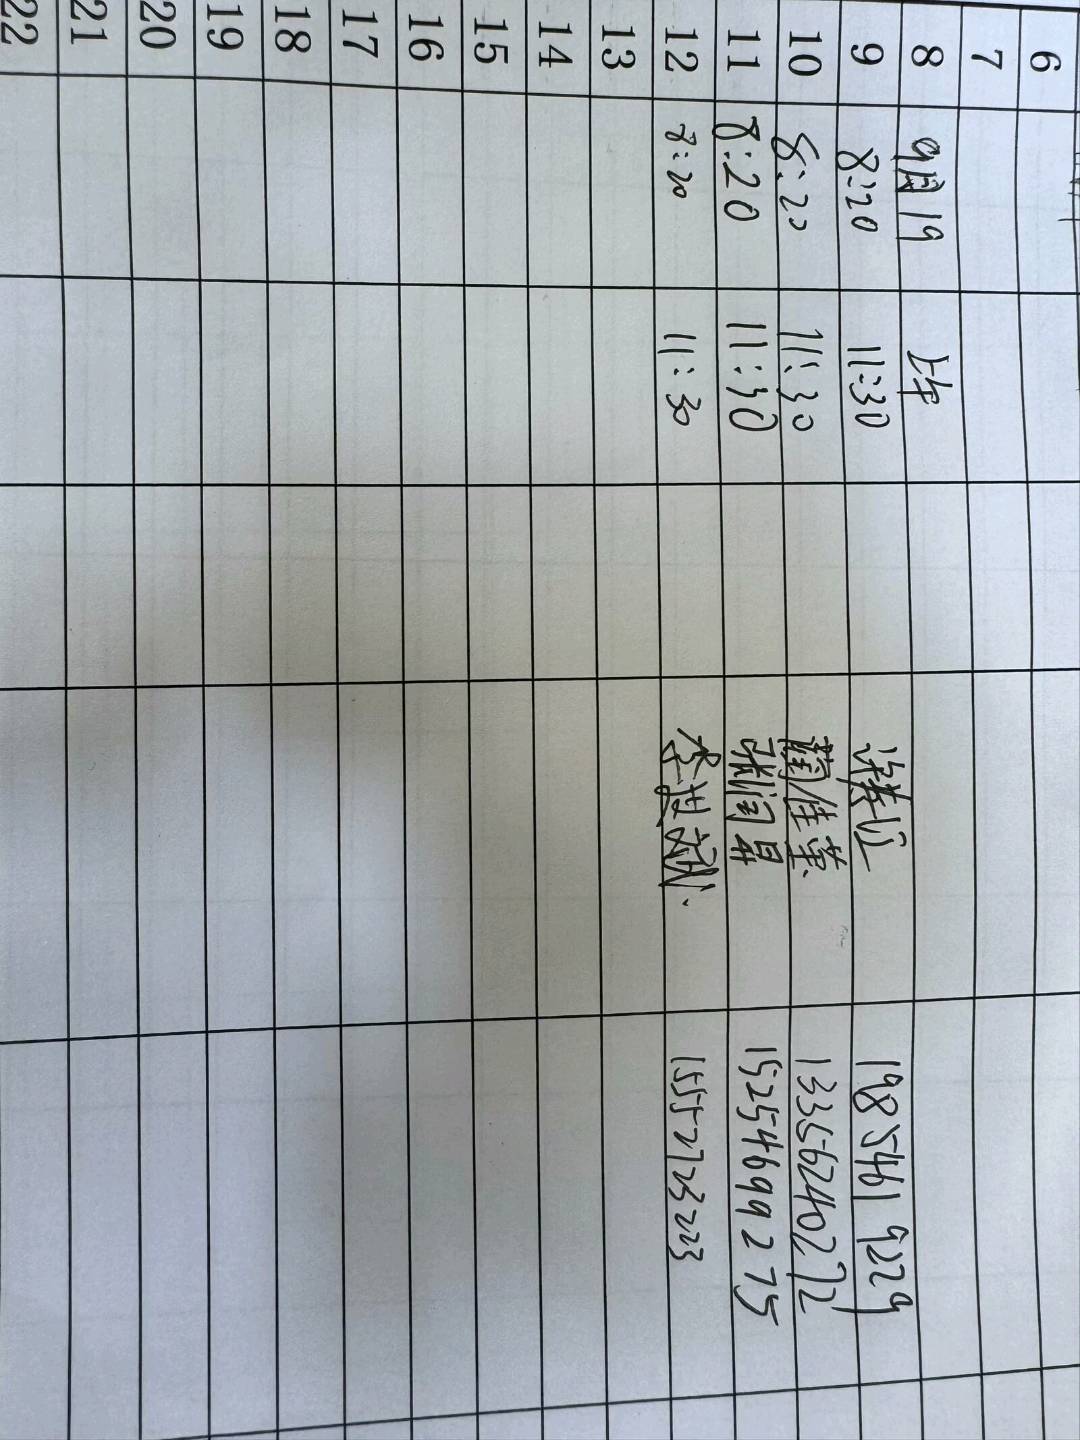 6
7
8 9月19 上午
9 8:20 11:30 19854619229
10 8:20 11:30 蔺佳 13356240272
11 8:20 11:30 张闰昇 15254699275
12 8:20 11:30 李世斌 15552723223
13
14
15
16
17
18
19
20
21
22